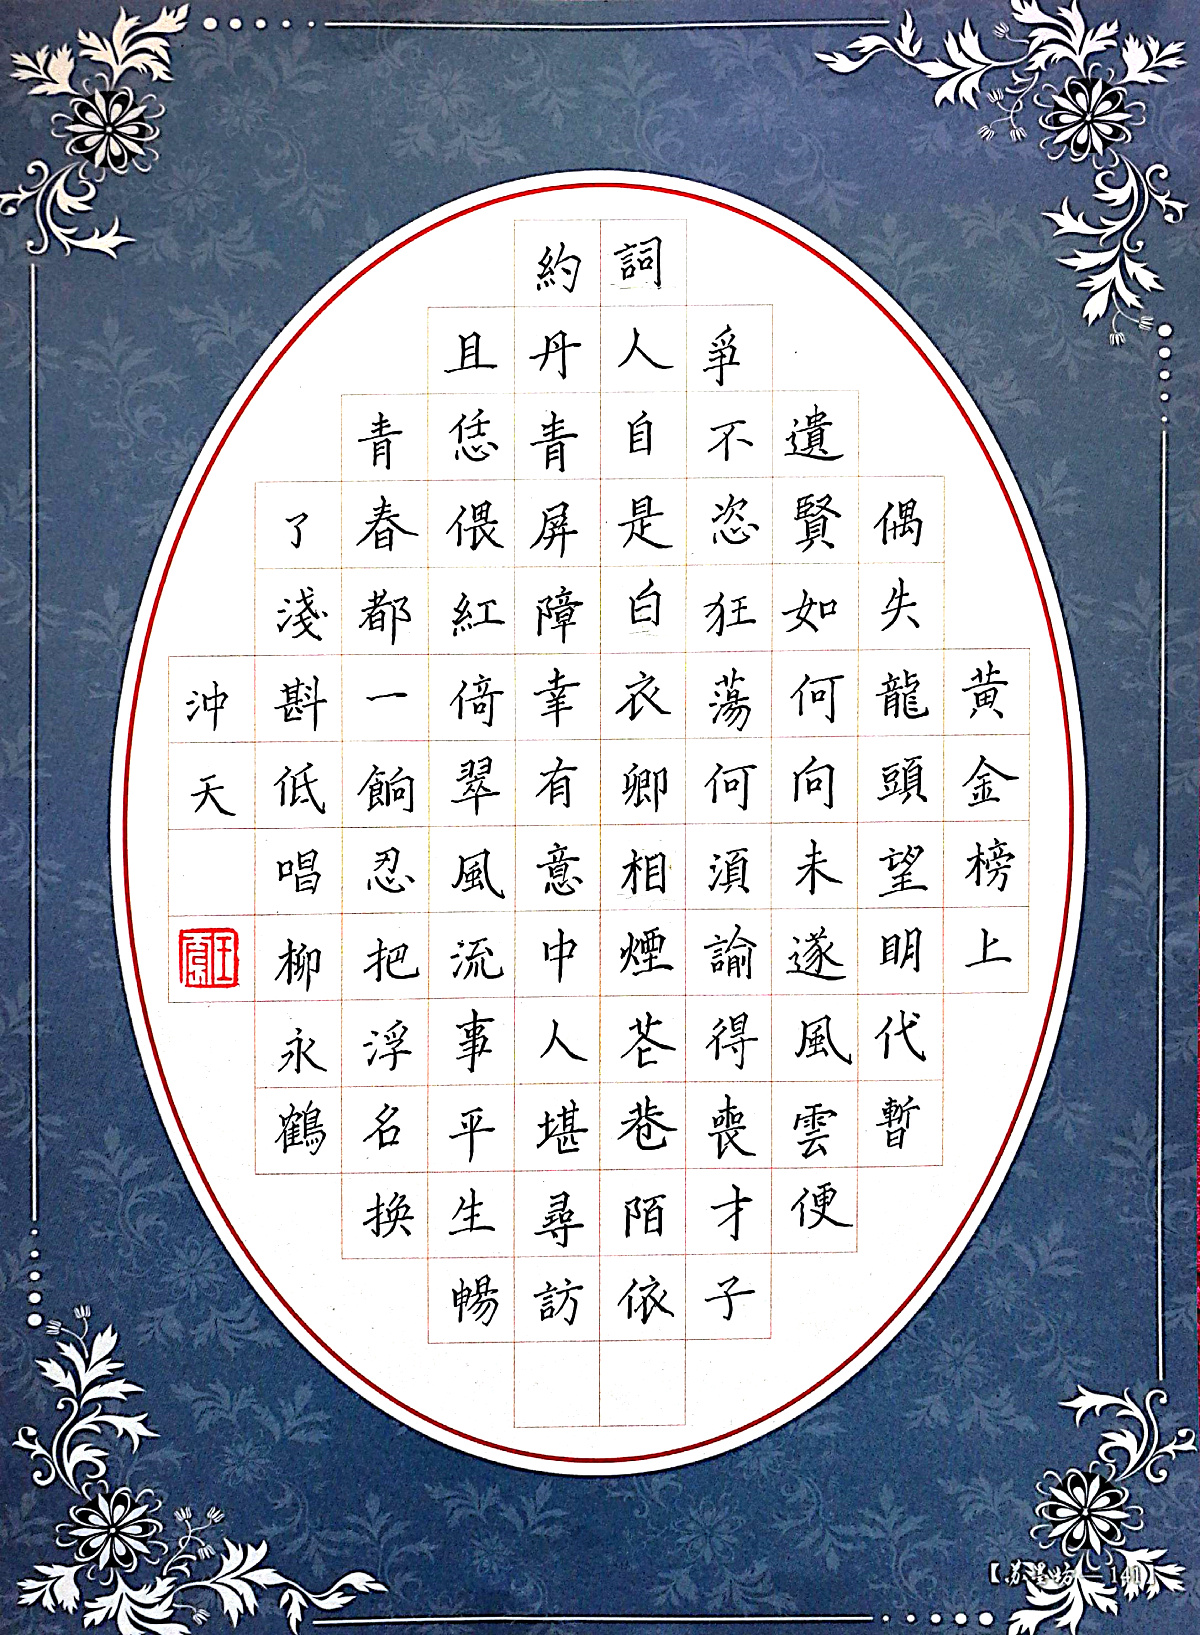 黃金榜上
偶失龍頭望眀代暫
遺賢如何向未遂風雲便
爭不恣狂蕩何湏諭得喪才子
詞人自是白衣卿相煙花巷陌依
約丹青屏障幸有意中人堪尋訪
且恁偎紅倚翠風流事平生暢
青春都一餉忍把浮名換
了淺斟低唱柳永鶴
沖天
【苏墨坊—141】